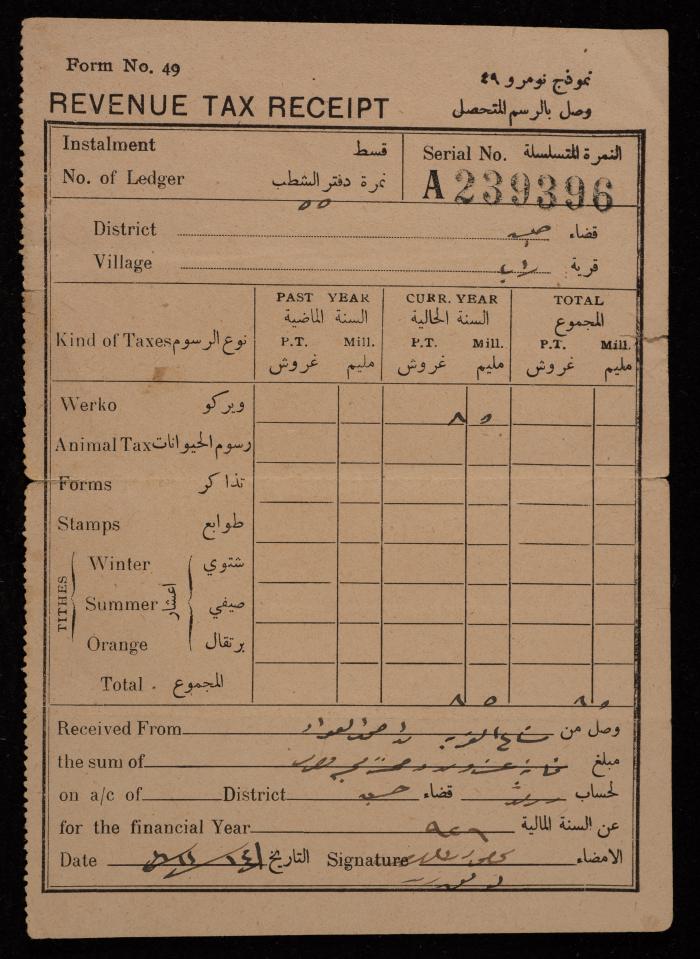 Form No. 49 نموذج نومرو ٤٩
REVENUE TAX RECEIPT وصل بالرسم المتحصل
Instalment قسط
No. of Ledger نمرة دفتر الشطب
٥٥
Serial No. النمرة المتسلسلة
A 239396
District قضاء
Village قرية
Kind of Taxes نوع الرسوم
PAST YEAR CURR. YEAR TOTAL
السنة الماضية السنة الحالية المجموع
P.T. Mill. P.T. Mill. P.T. Mill.
غروش مليم غروش مليم غروش مليم
Werko ويركو ٨ ٥
Animal Tax رسوم الحيوانات
Forms تذاكر
Stamps طوابع
TITHES اعشار
Winter شتوي
Summer صيفي
Orange برتقال
Total . المجموع ٨ ٥ ٨ ٥
Received From وصل من
the sum of مبلغ
on a/c of District قضاء لحساب
for the financial Year ٩٤٩ عن السنة المالية
Date التاريخ Signature الامضاء